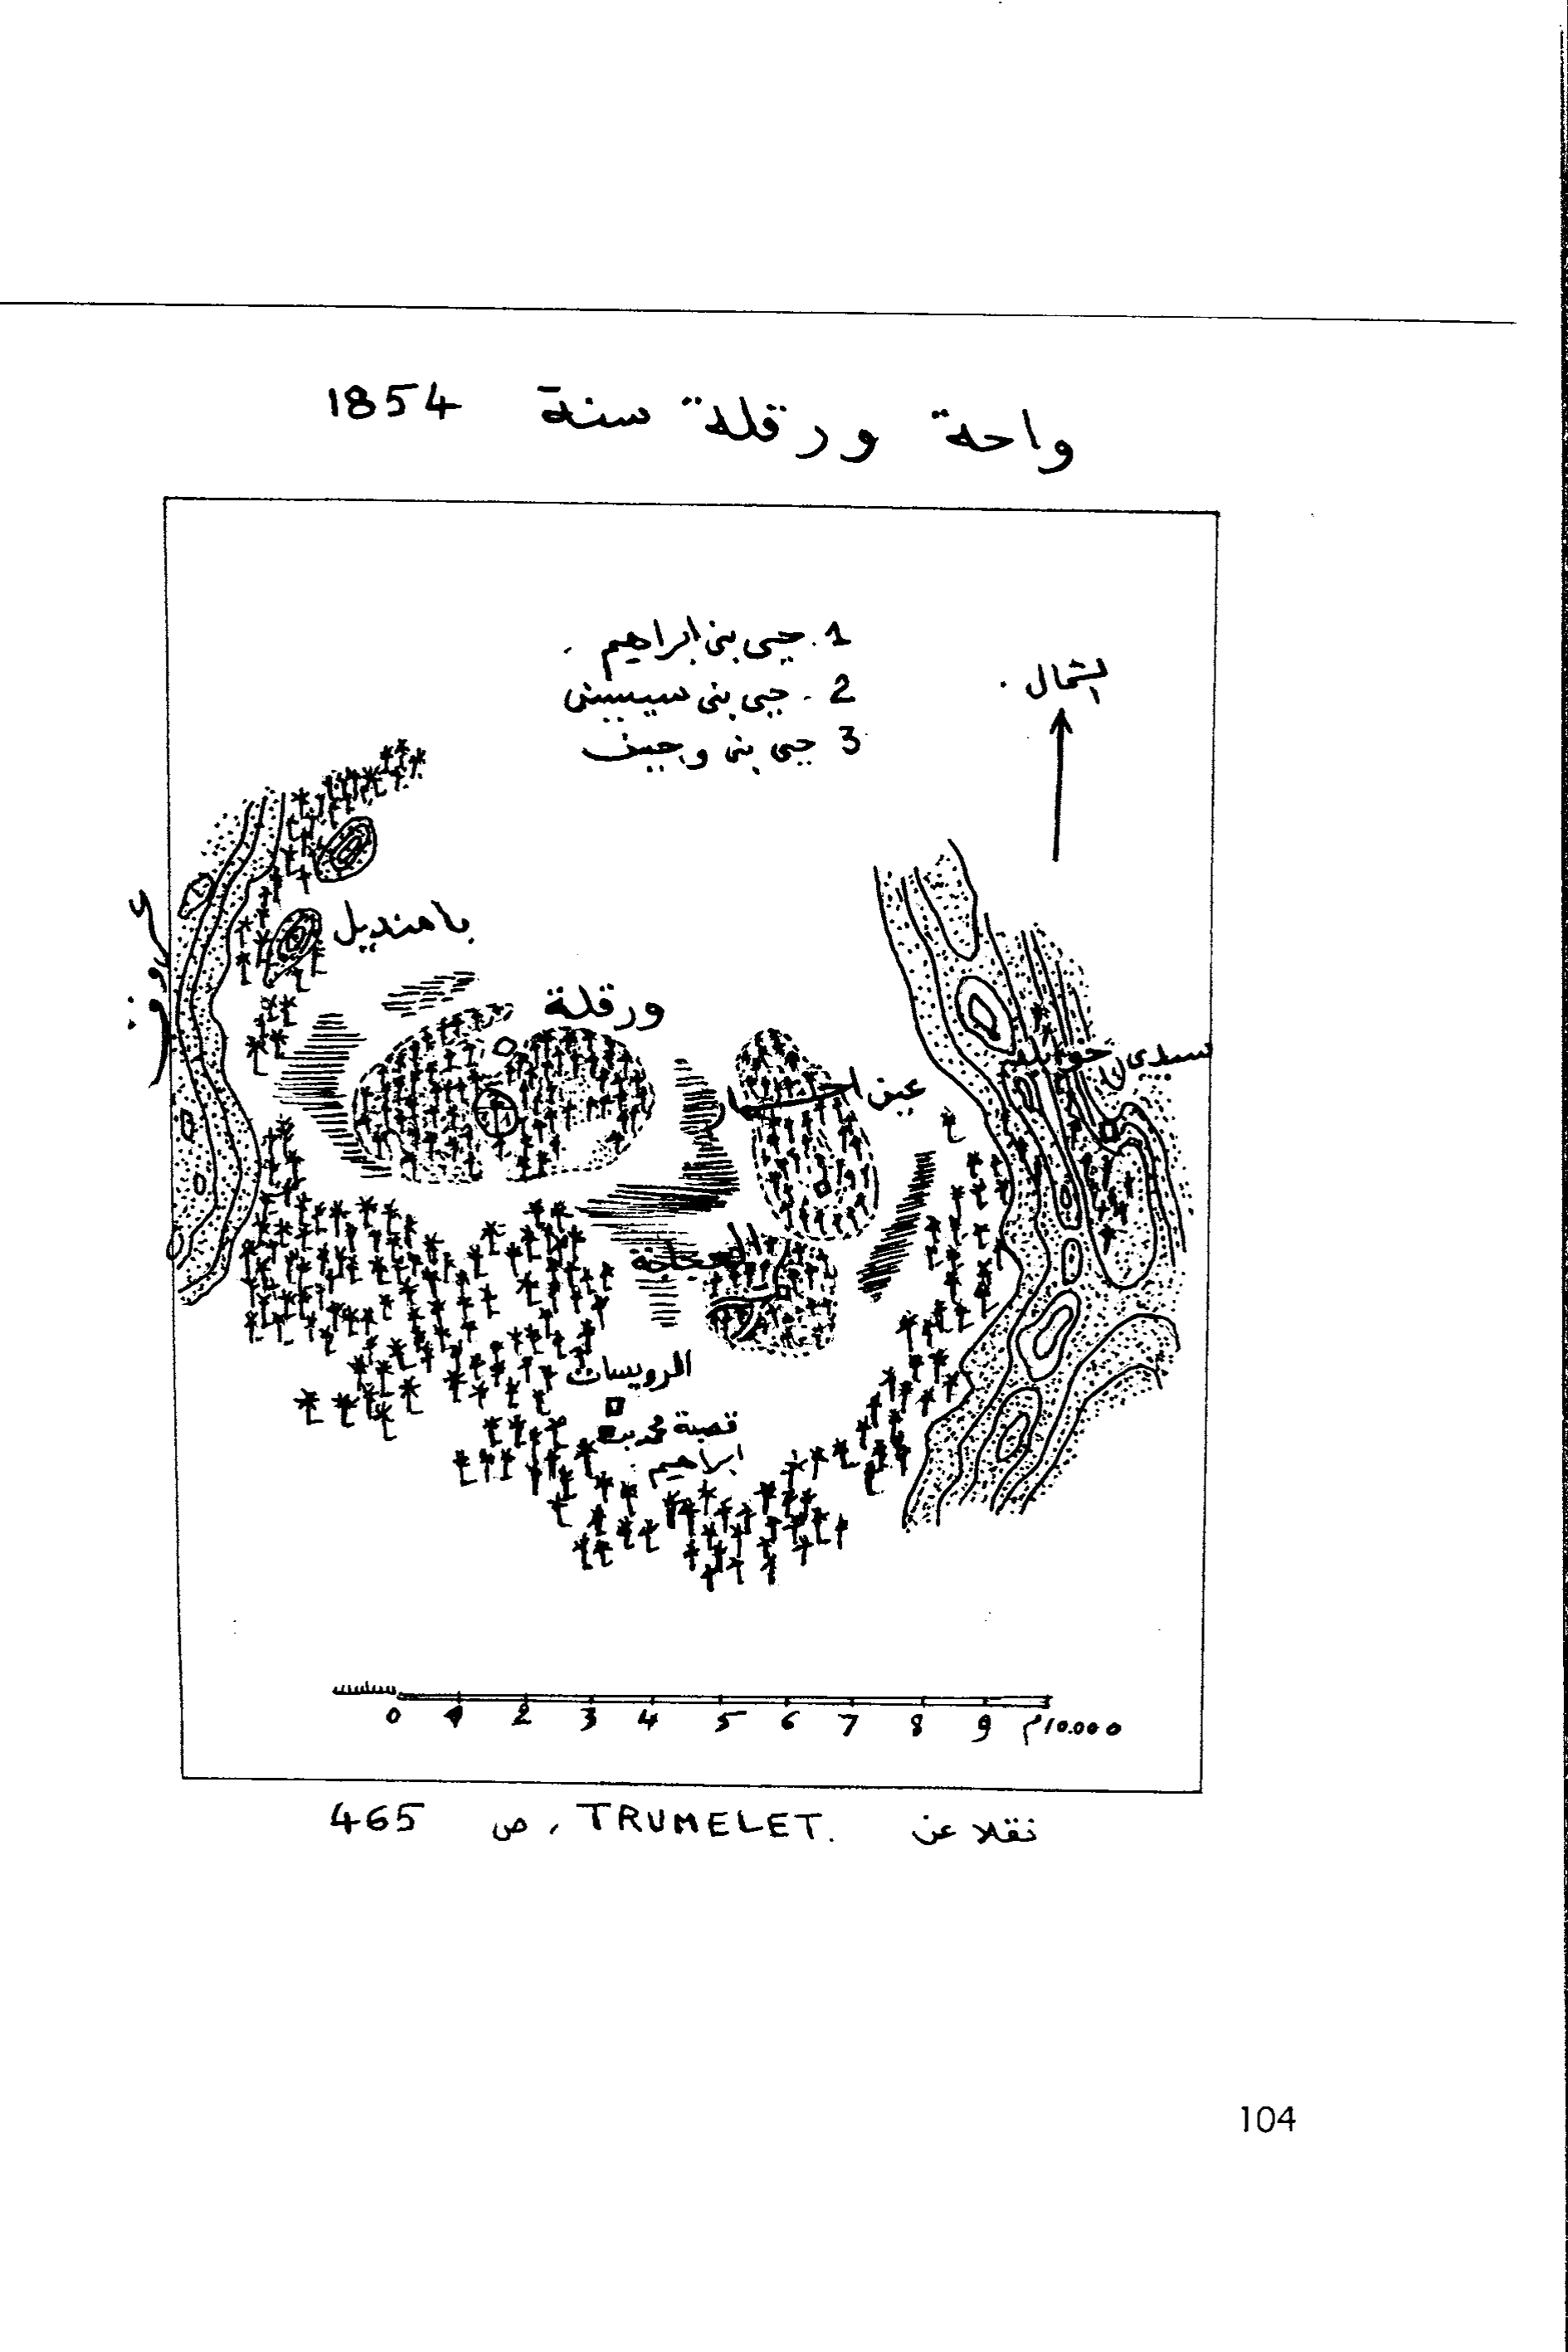 واحة ورقلة سنة 1854
1. حي بني ابراهيم.
2. حي بني سيسين
3 حي بني وجين
الشمال.
بامنديل
ورقلة
سيدي خويلد
عين
العجاجة
الرويسات
قصبة محمد بن
ابراهيم
0 1 2 3 4 5 6 7 8 9 10.000م
نقلا عن TRUMELET. ، ص 465
104